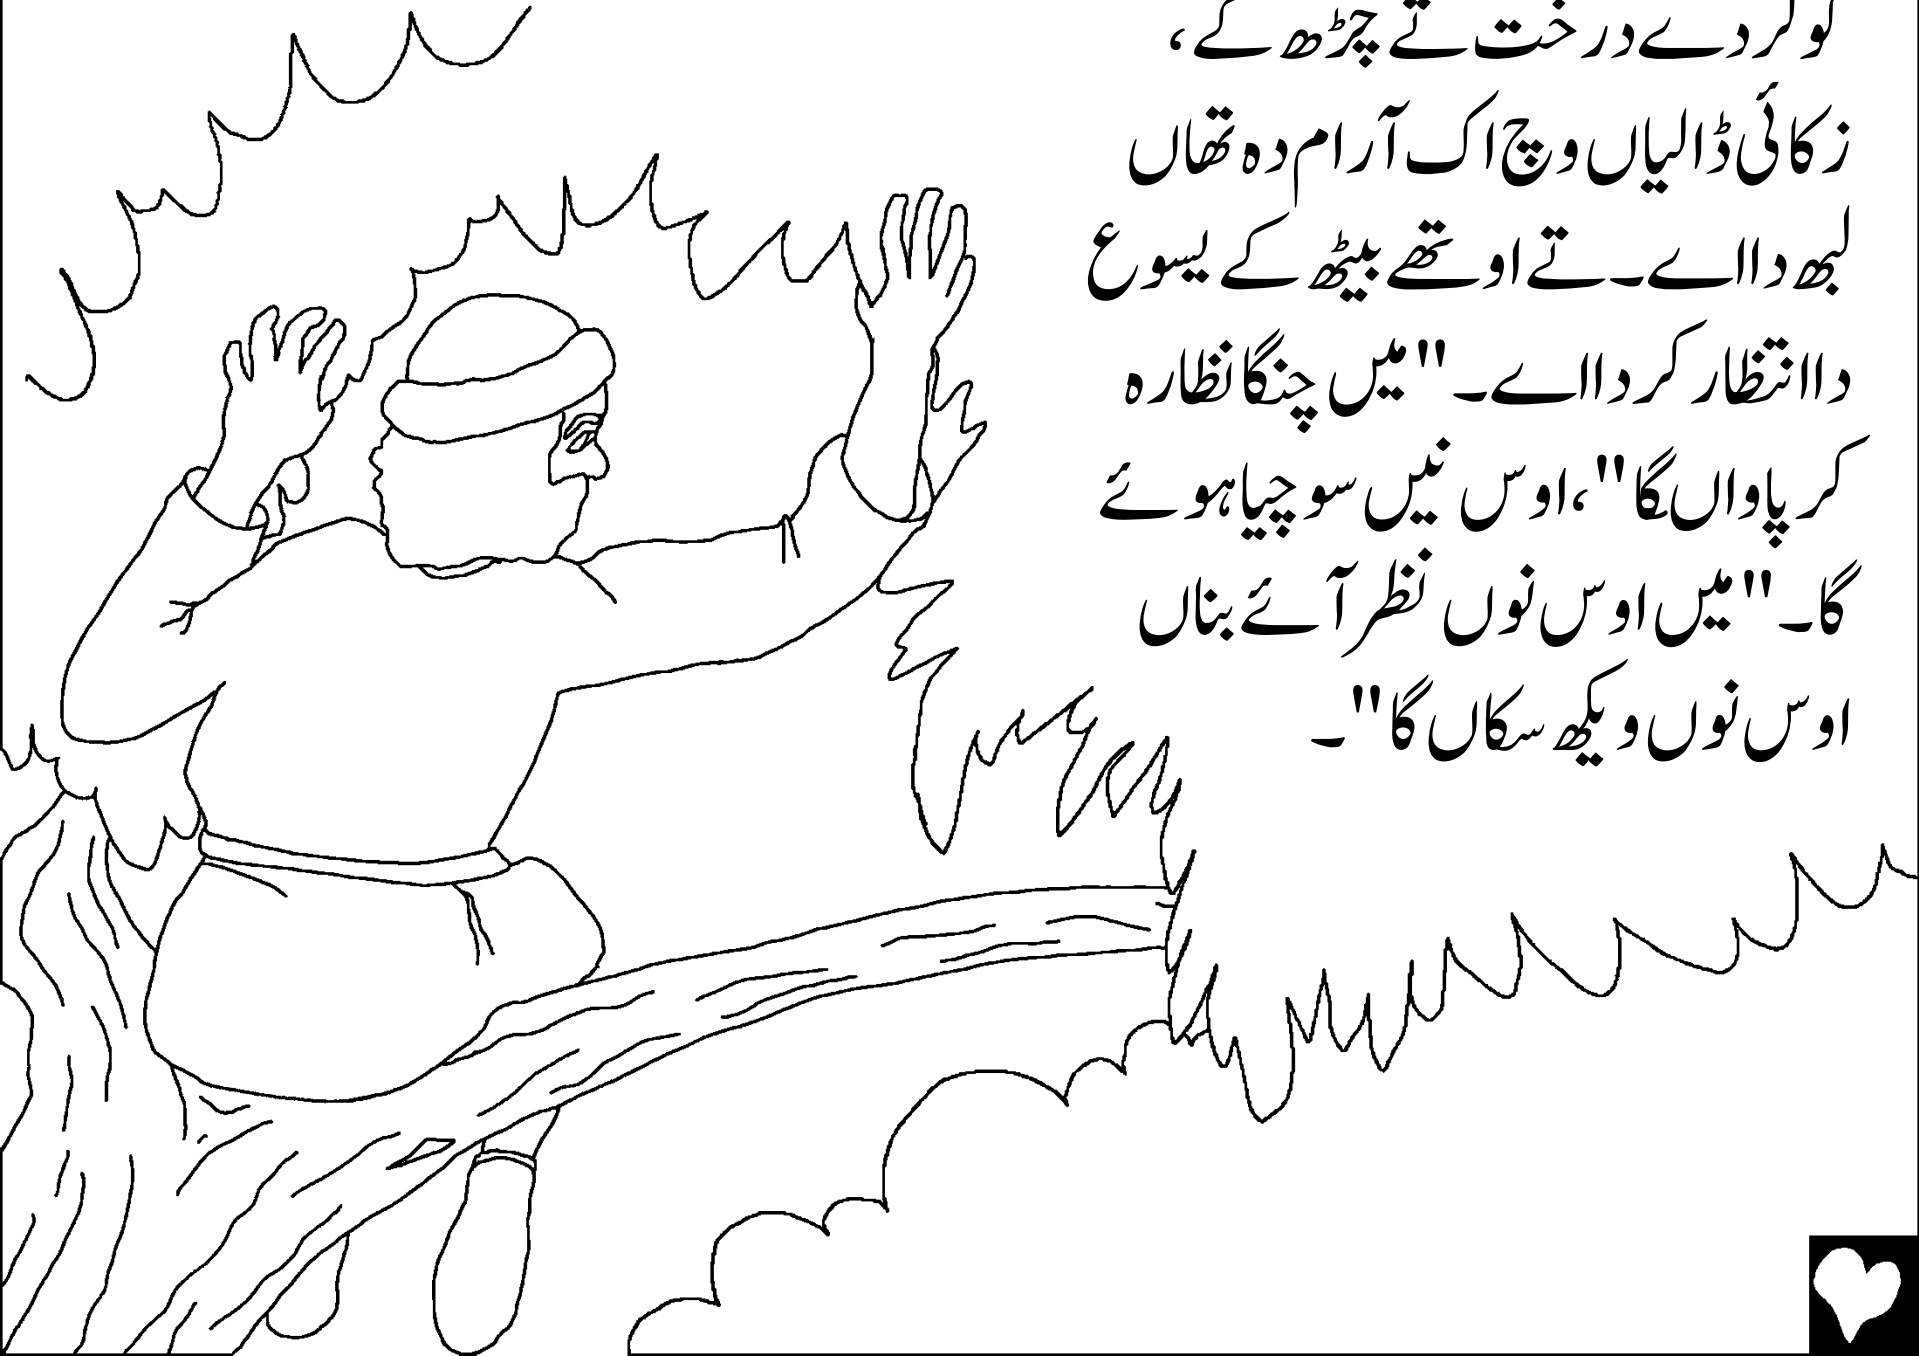 گولر دے درخت تے چڑھ کے،
زکائی ڈالیاں وچ اک آرام دہ تھاں
لبھ دا اے۔ تے اوتھے بیٹھ کے یسوع
دا انتظار کر دا اے۔ "میں چنگا نظارہ
کر پاواں گا"، اوس نیں سوچیا ہوئے
گا۔ "میں اوس نوں نظر آئے بناں
اوس نوں ویکھ سکاں گا"۔